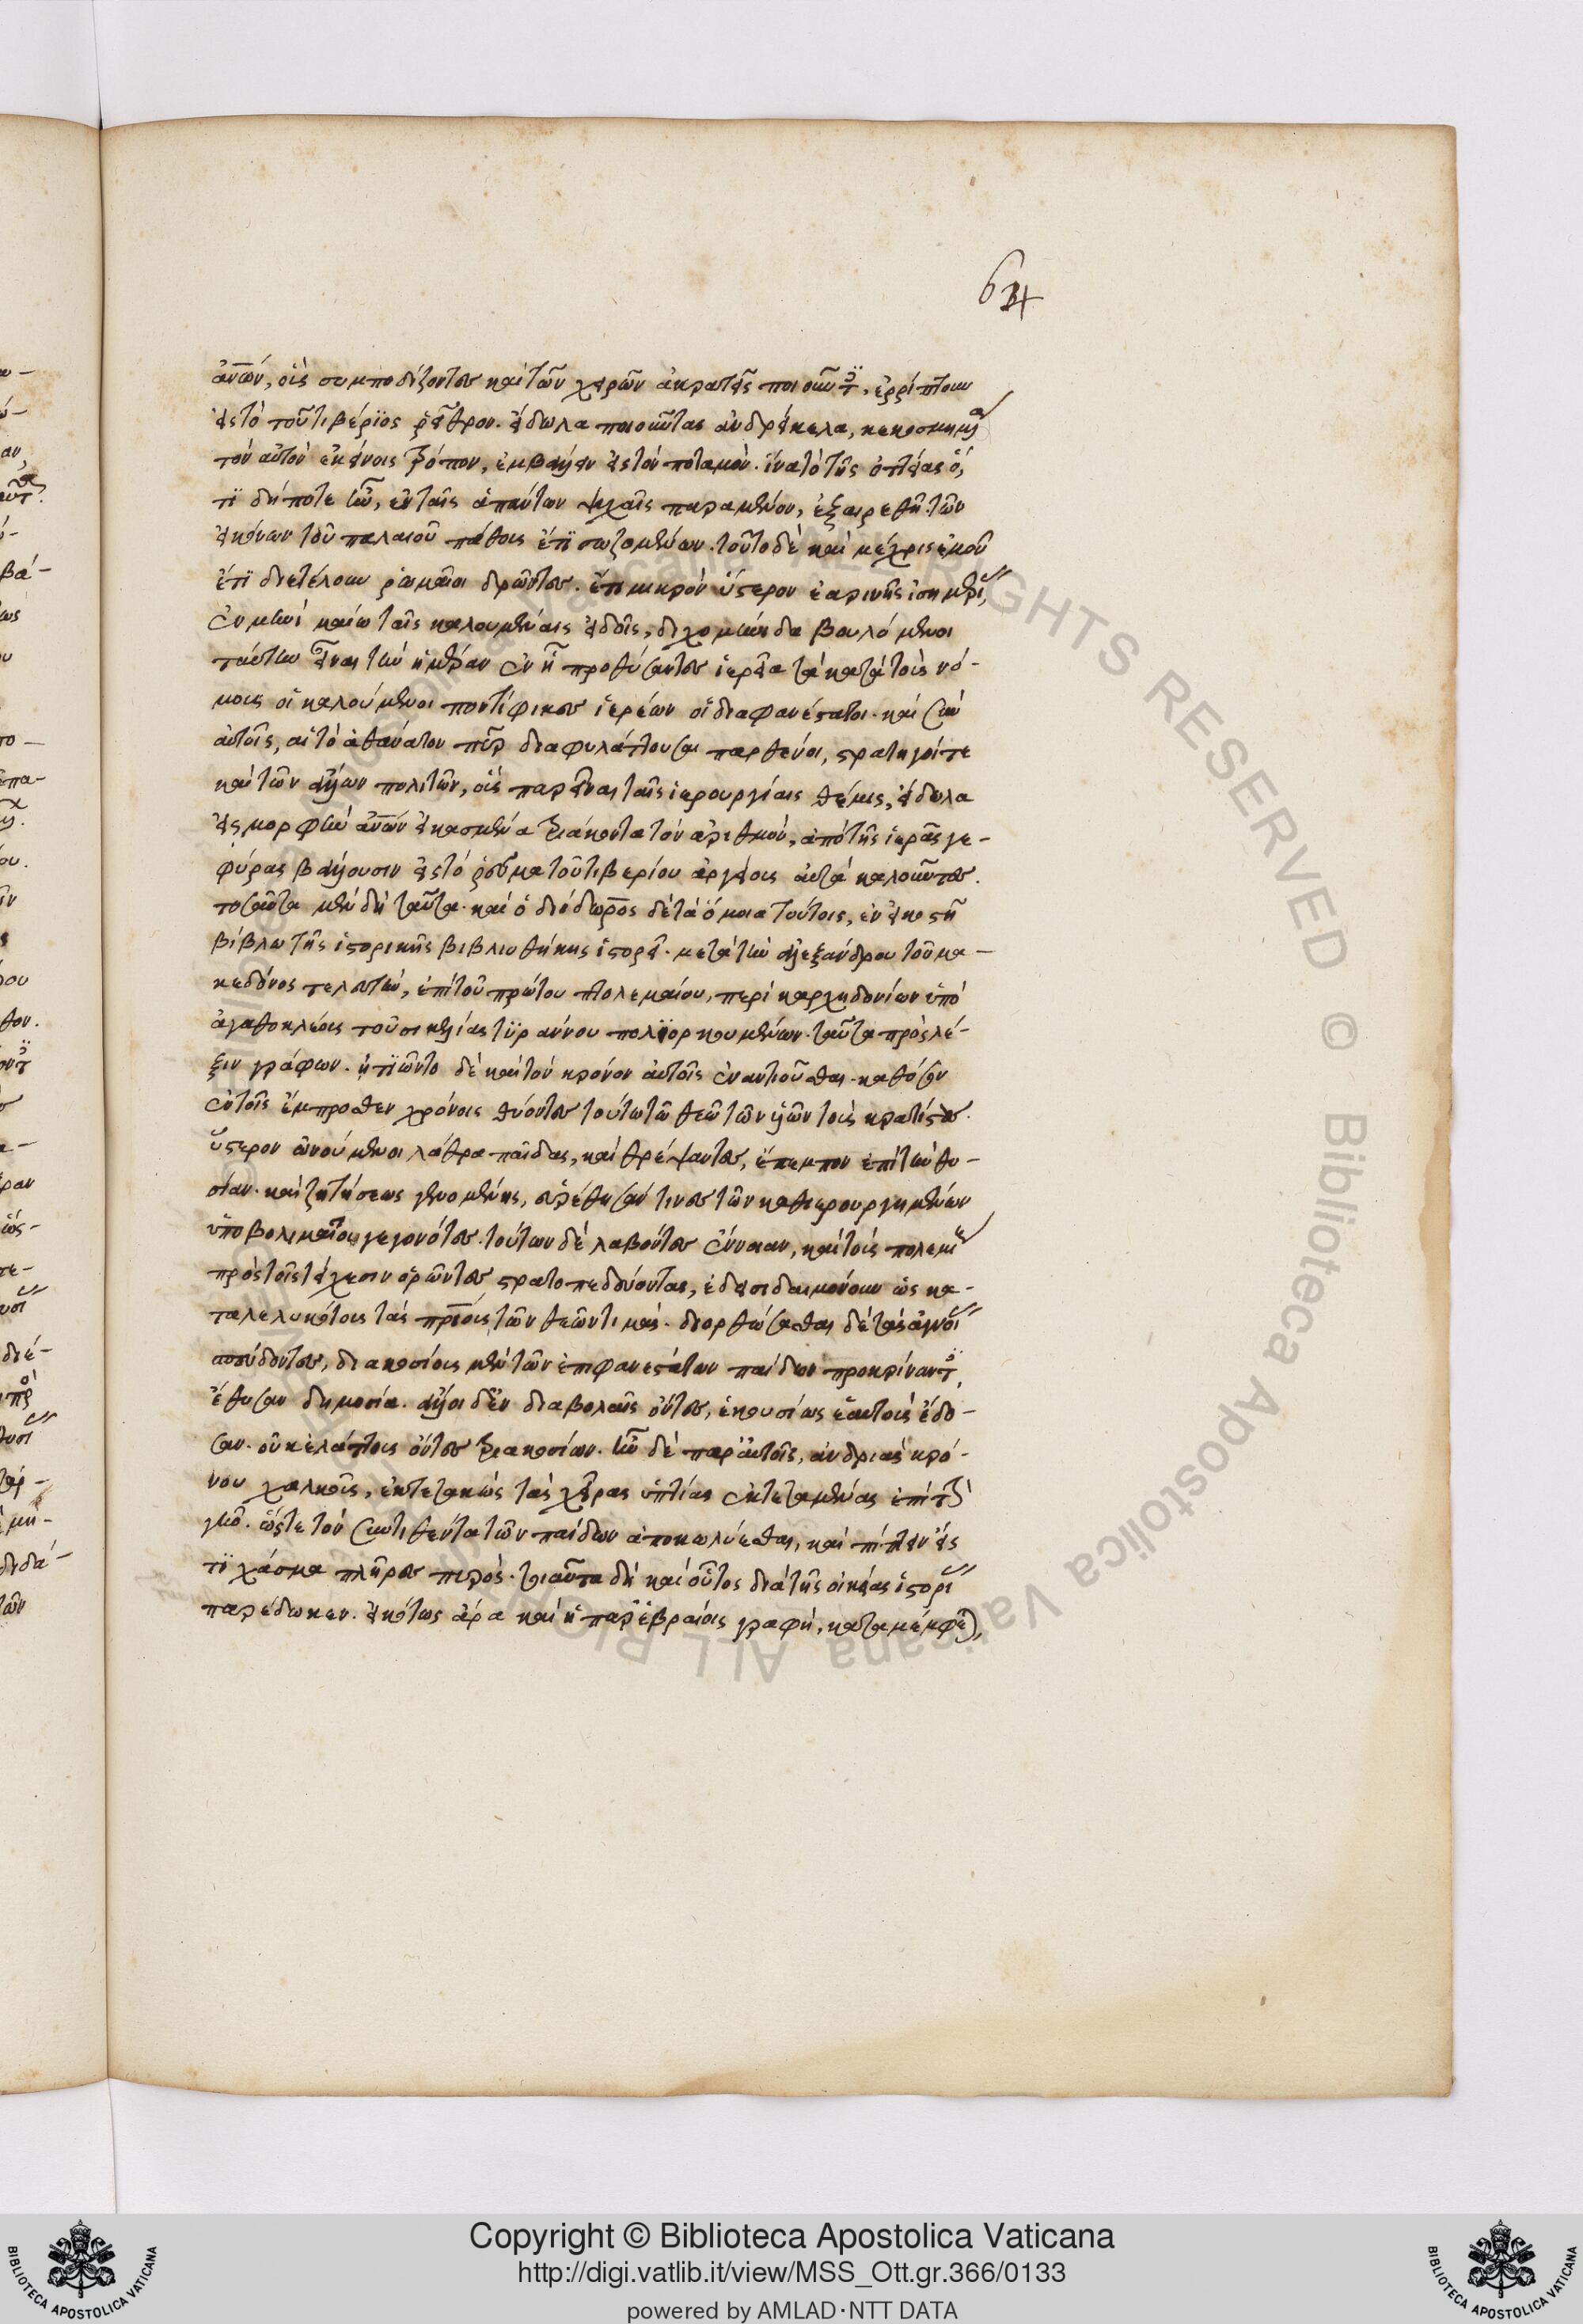 64
ἀνῶν, οὓς συμποδίζοντες καὶ τῶν χειρῶν ἀκρατεῖς ποιοῦντες, ἐρρίπτουν
εἰς τὸ τοῦ τιβέριος ῥεῖθρον. εἴδωλα ποιοῦντας ἀνδρείκελα, κεκοσμημένα
τὸν αὐτὸν ἐκείνοις τρόπον, ἐμβαλεῖν εἰς τὸν ποταμόν. ἵνα τὸ τῆς ὀττείας ὅ,
τι δήποτε ἦν, ἐν ταῖς ἁπάντων ψυχαῖς παραμένον, ἐξαιρεθῆ τῶν
εἰκόνων τοῦ παλαιοῦ πάθους ἔτι σωζομένων. τοῦτο δὲ καὶ μέχρις ἐμοῦ
ἔτι διετέλουν ῥωμαῖοι δρῶντες. ἔτι μικρὸν ὕστερον ἐαρινῆς ἰσημερί,
ἐν μηνὶ μαίω ταῖς καλουμέναις εἰδοῖς, διχομήνιδα βουλόμενοι
ταύτην εἶναι τὴν ἡμέραν ἐν ἧ προθύσαντες ἱερεῖα τὰ κατὰ τοὺς νό-
μους οἱ καλούμενοι ποντίφικες ἱερέων οἱ διαφανέστατοι. καὶ σὺν
αὐτοῖς, αἱ τὸ ἀθάνατον πῦρ διαφυλάττουσαι παρθένοι, στρατηγοί τε
καὶ τῶν ἄλλων πολιτῶν, οὓς παρεῖναι ταῖς ἱερουργίαις θέμις, εἴδωλα
εἰς μορφὴν ἀνῶν εἰκασμένα τριάκοντα τὸν ἀριθμὸν, ἀπὸ τῆς ἱερᾶς γε-
φύρας βάλλουσιν εἰς τὸ ῥεῦμα τοῦ τιβερίου ἀργείους αὐτὰ καλοῦντες.
τοσαῦτα μὲν δὴ ταῦτα. καὶ ὁ διόδωρος δὲ τὰ ὅμοια τούτοις, ἐν εἰκοστῆ
βίβλω τῆς ἱστορικῆς βιβλιοθήκης ἱστορεῖ. μετὰ τὴν ἀλεξάνδρου τοῦ μα-
κεδόνος τελευτὴν, ἐπὶ τοῦ πρώτου πτολεμαίου, περὶ καρχηδονίων ὑπὸ
ἀγαθοκλέους τοῦ σικελίας τυράννου πολιορκουμένων. ταῦτα πρὸς λέ-
ξιν γράφων. ἠτιῶντο δὲ καὶ τὸν κρόνον αὐτοῖς ἐναντιοῦσθαι. καθόσον
ἐν τοῖς ἔμπροσθεν χρόνοις θύοντες τούτω τῶ θεῶ τῶν υἱῶν τοὺς κρατίστους.
ὕστερον ὠνούμενοι λάθρα παῖδας, καὶ θρέψαντες, ἔπεμπον ἐπὶ τὴν θυ-
σίαν. καὶ ζητήσεως γενομένης, εὑρέθησάν τινες τῶν καθιερουργημένων
ὑποβολιμαῖοι γεγονότες. τούτων δὲ λαβόντες ἔννοιαν, καὶ τοὺς πολεμί
πρὸς τοῖς τείχεσιν ὁρῶντες στρατοπεδεύοντας, ἐδεισιδαιμόνουν ὡς κα-
ταλελυκότους τὰς πρίους τῶν θεῶν τιμάς. διορθώσασθαι δὲ τὰς ἀγνοί
σπεύδοντες, διακοσίους μὲν τῶν ἐπιφανεστάτων παίδων προκρίναντες,
ἔθυσαν δημοσία. ἄλλοι δ' ἐν διαβολαῖς ὄντες, ἑκουσίως ἑαυτοὺς ἔδο-
σαν. οὐκ ἐλάττους ὄντες τριακοσίων. ἦν δὲ παρ' αὐτοῖς, ἀνδριὰς κρό-
νου χαλκοῦς, ἐκτετακὼς τὰς χεῖρας ὑπτίας ἐκτεταμένας ἐπὶ τὴν
γῆν. ὥστε τὸν ἐντιθέντα τῶν παίδων ἀποκωλύεσθαι, καὶ πίπτειν εἴς
τι χάσμα πλῆρες πυρός. τοιαῦτα δὴ καὶ οὗτος διὰ τῆς οἰκείας ἱστορί
παρέδωκεν. εἰκότως ἄρα καὶ ἡ παρ' ἑβραίοις γραφὴ, καταμέμφεται,
Copyright © Biblioteca Apostolica Vaticana
http://digi.vatlib.it/view/MSS_Ott.gr.366/0133
powered by AMLAD·NTT DATA